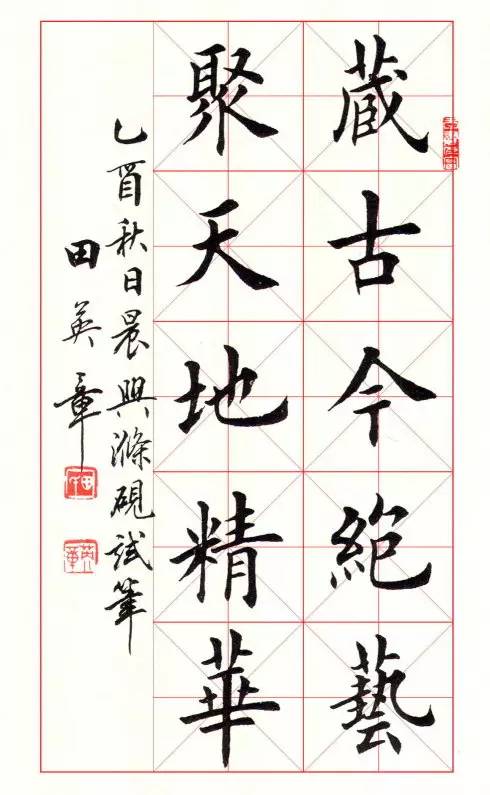 藏古今絶藝
聚天地精華
乙酉秋日晨興滌硯試筆
田英章
英章